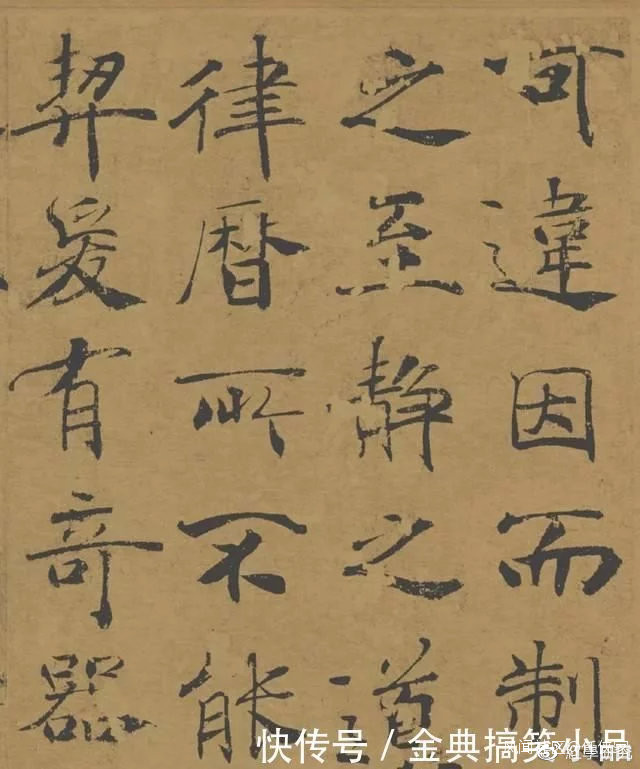 可違因而制
之至靜之道
律曆所不能
契爰有奇器
快传号 / 金典搞笑小品